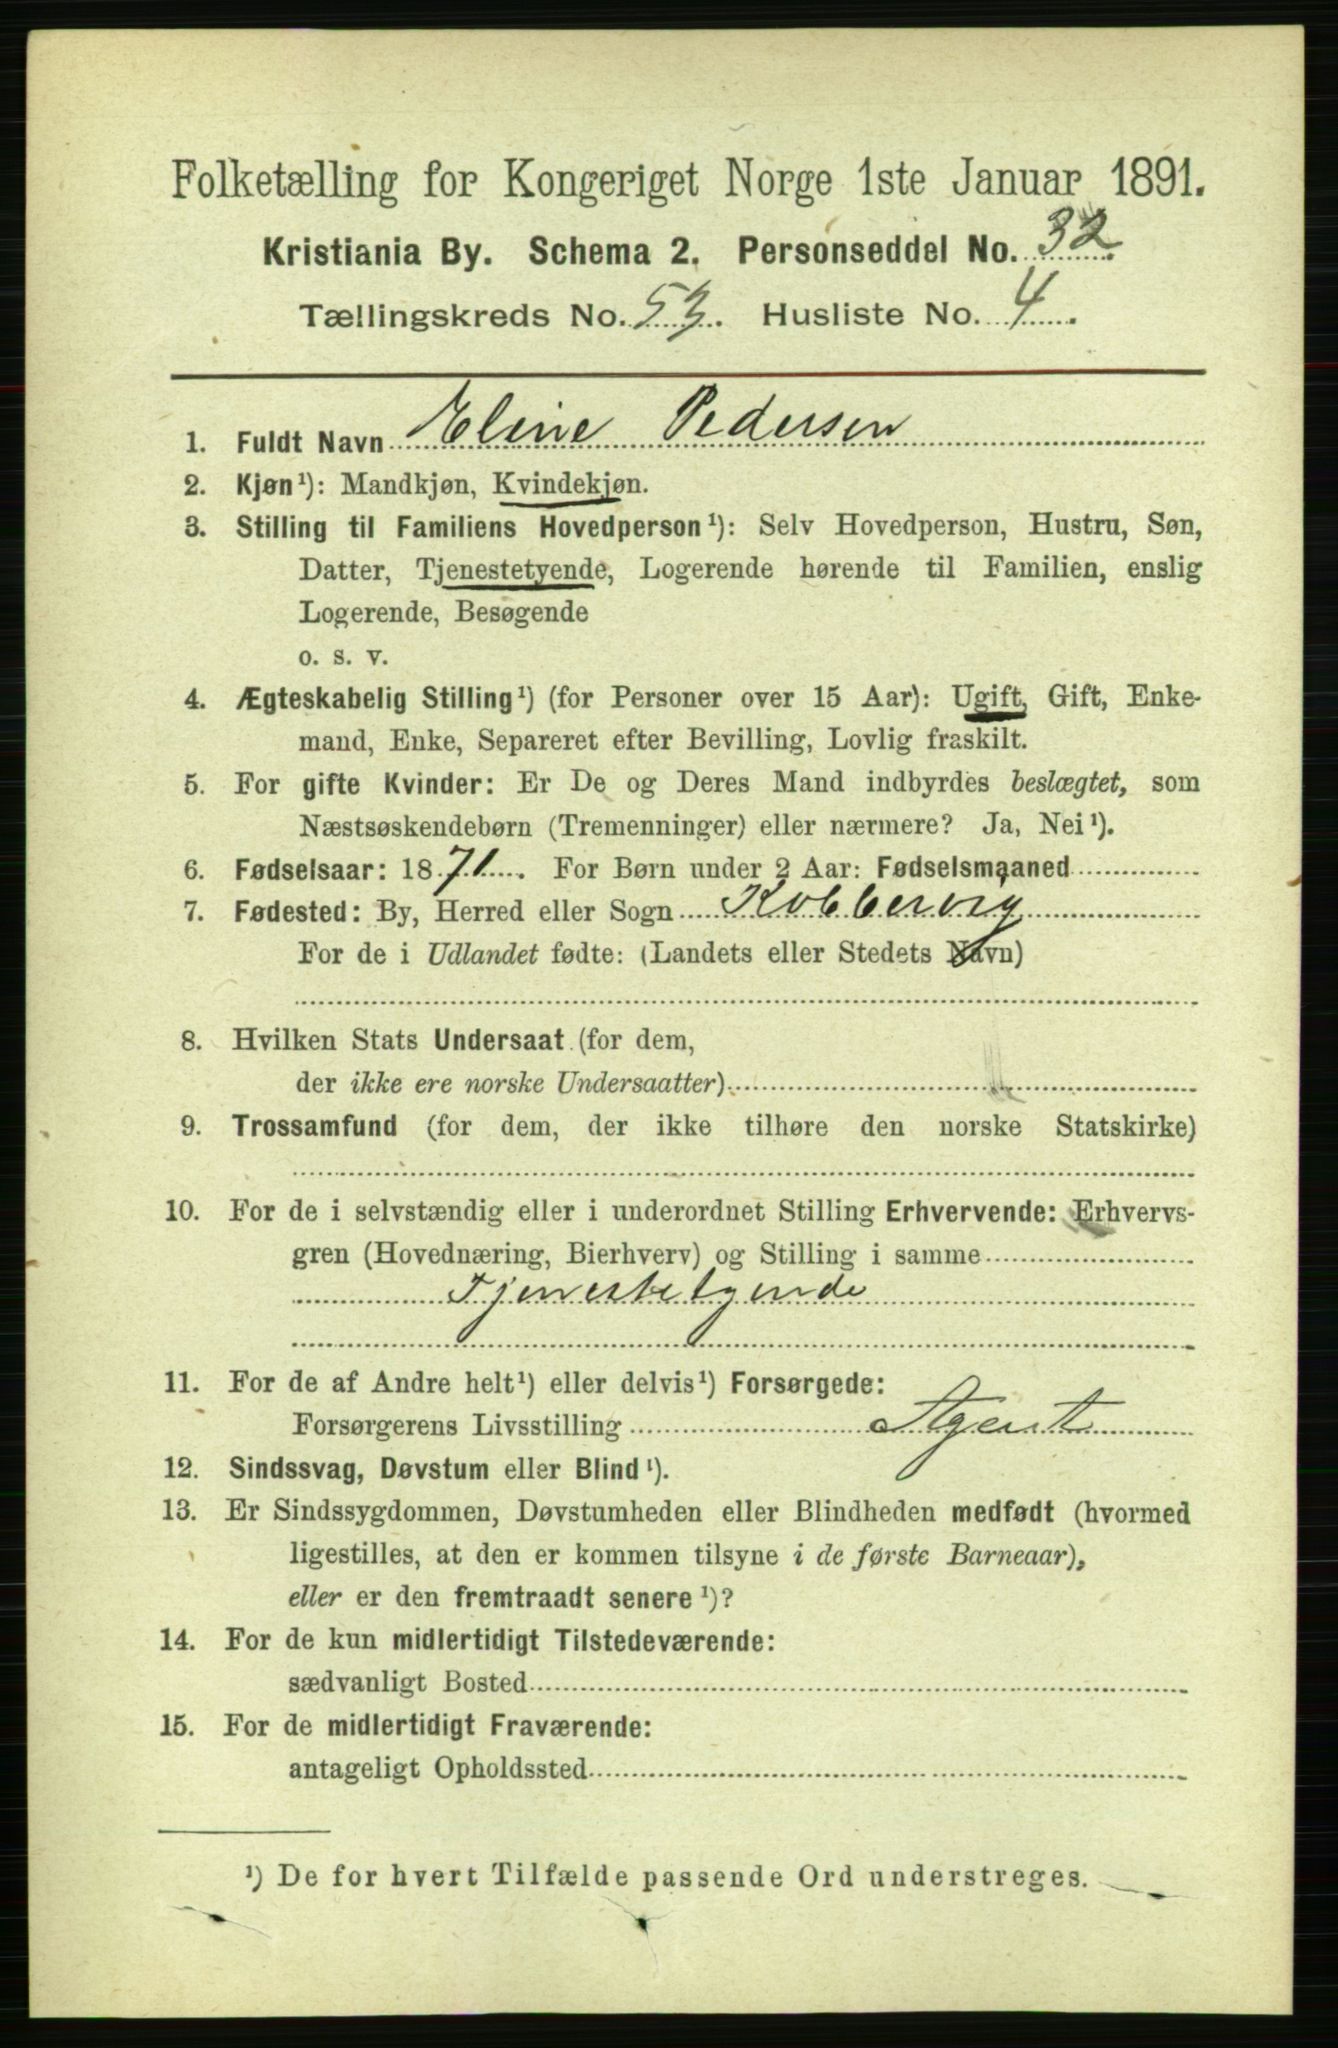 Folketælling for Kongeriget Norge 1ste Januar 1891.
Kristiania By. Schema 2. Personseddel No. 32
Tællingskreds No. 53. Husliste No. 4
1. Fuldt Navn Eline Pedersen
2. Kjøn¹): Mandkjøn, Kvindekjøn.
3. Stilling til Familiens Hovedperson¹): Selv Hovedperson, Hustru, Søn,
Datter, Tjenestetyende, Logerende hørende til Familien, enslig
Logerende, Besøgende
o. s. v.
4. Ægteskabelig Stilling¹) (for Personer over 15 Aar): Ugift, Gift, Enke-
mand, Enke, Separeret efter Bevilling, Lovlig fraskilt.
5. For gifte Kvinder: Er De og Deres Mand indbyrdes beslægtet, som
Næstsøskendebørn (Tremenninger) eller nærmere? Ja, Nei¹).
6. Fødselsaar: 1871. For Børn under 2 Aar: Fødselsmaaned
7. Fødested: By, Herred eller Sogn Kobbervig
For de i Udlandet fødte: (Landets eller Stedets Navn)
8. Hvilken Stats Undersaat (for dem,
der ikke ere norske Undersaatter)
9. Trossamfund (for dem, der ikke tilhøre den norske Statskirke)
10. For de i selvstændig eller i underordnet Stilling Erhvervende: Erhvervs-
gren (Hovednæring, Bierhverv) og Stilling i samme
Tjenestetyende
11. For de af Andre helt¹) eller delvis¹) Forsørgede:
Forsørgerens Livsstilling Agent
12. Sindssvag, Døvstum eller Blind¹).
13. Er Sindssygdommen, Døvstumheden eller Blindheden medfødt (hvormed
ligestilles, at den er kommen tilsyne i de første Barneaar),
eller er den fremtraadt senere¹)?
14. For de kun midlertidigt Tilstedeværende:
sædvanligt Bosted
15. For de midlertidigt Fraværende:
antageligt Opholdssted
¹) De for hvert Tilfælde passende Ord understreges.